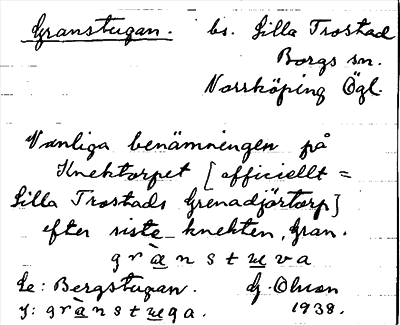 Granstugan. bs. Lilla Trostad
Borgs sn.
Norrköping Ögl.
Vanliga benämningen på
Knektorpet [officiellt =
Lilla Trostads Grenadjörtorp]
efter siste knekten, Gran.
grànstuva
Se: Bergstugan. G. Olson
J: grànstuga. 1938.